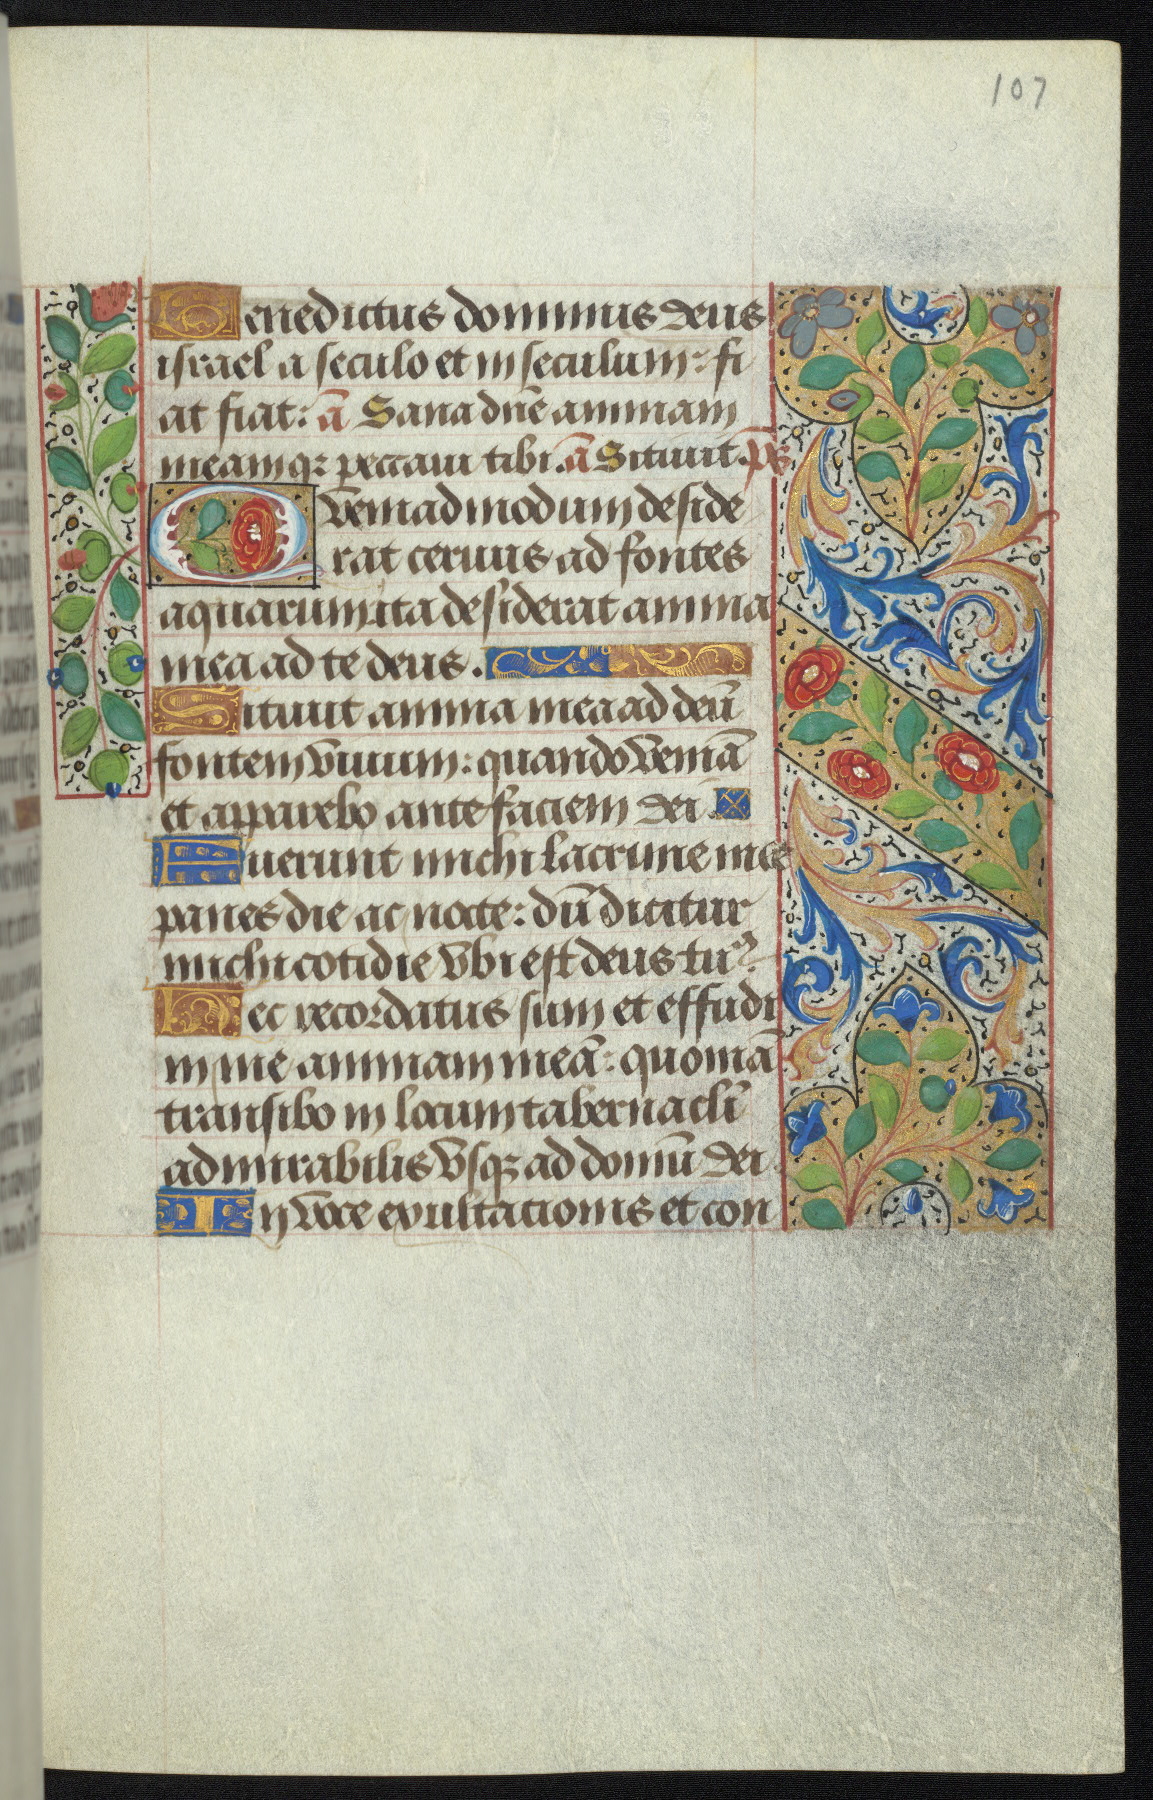 107
Benedictus dominus deus
israel a seculo et in seculum: fi
at fiat: ā Sana dn̄e animam
meam qꝛ peccaui tibi. ā Sitiuit. p̄s
Quemadmodum deside
rat ceruus ad fontes
aquarum ita desiderat anima
mea ad te deus.
Sitiuit anima mea ad deū
fontem viuum: quando veniā
et apparebo ante faciem dei.
Fuerunt michi lacrime mee
panes die ac nocte: dū dicitur
michi cotidie vbi est deus tuꝰ?
Hec recordatus sum et effudi
in me animam meā: quoniā
transibo in locum tabernacli̅
admirabilis vsqꝫ ad domū dei.
In voce exultacionis et con